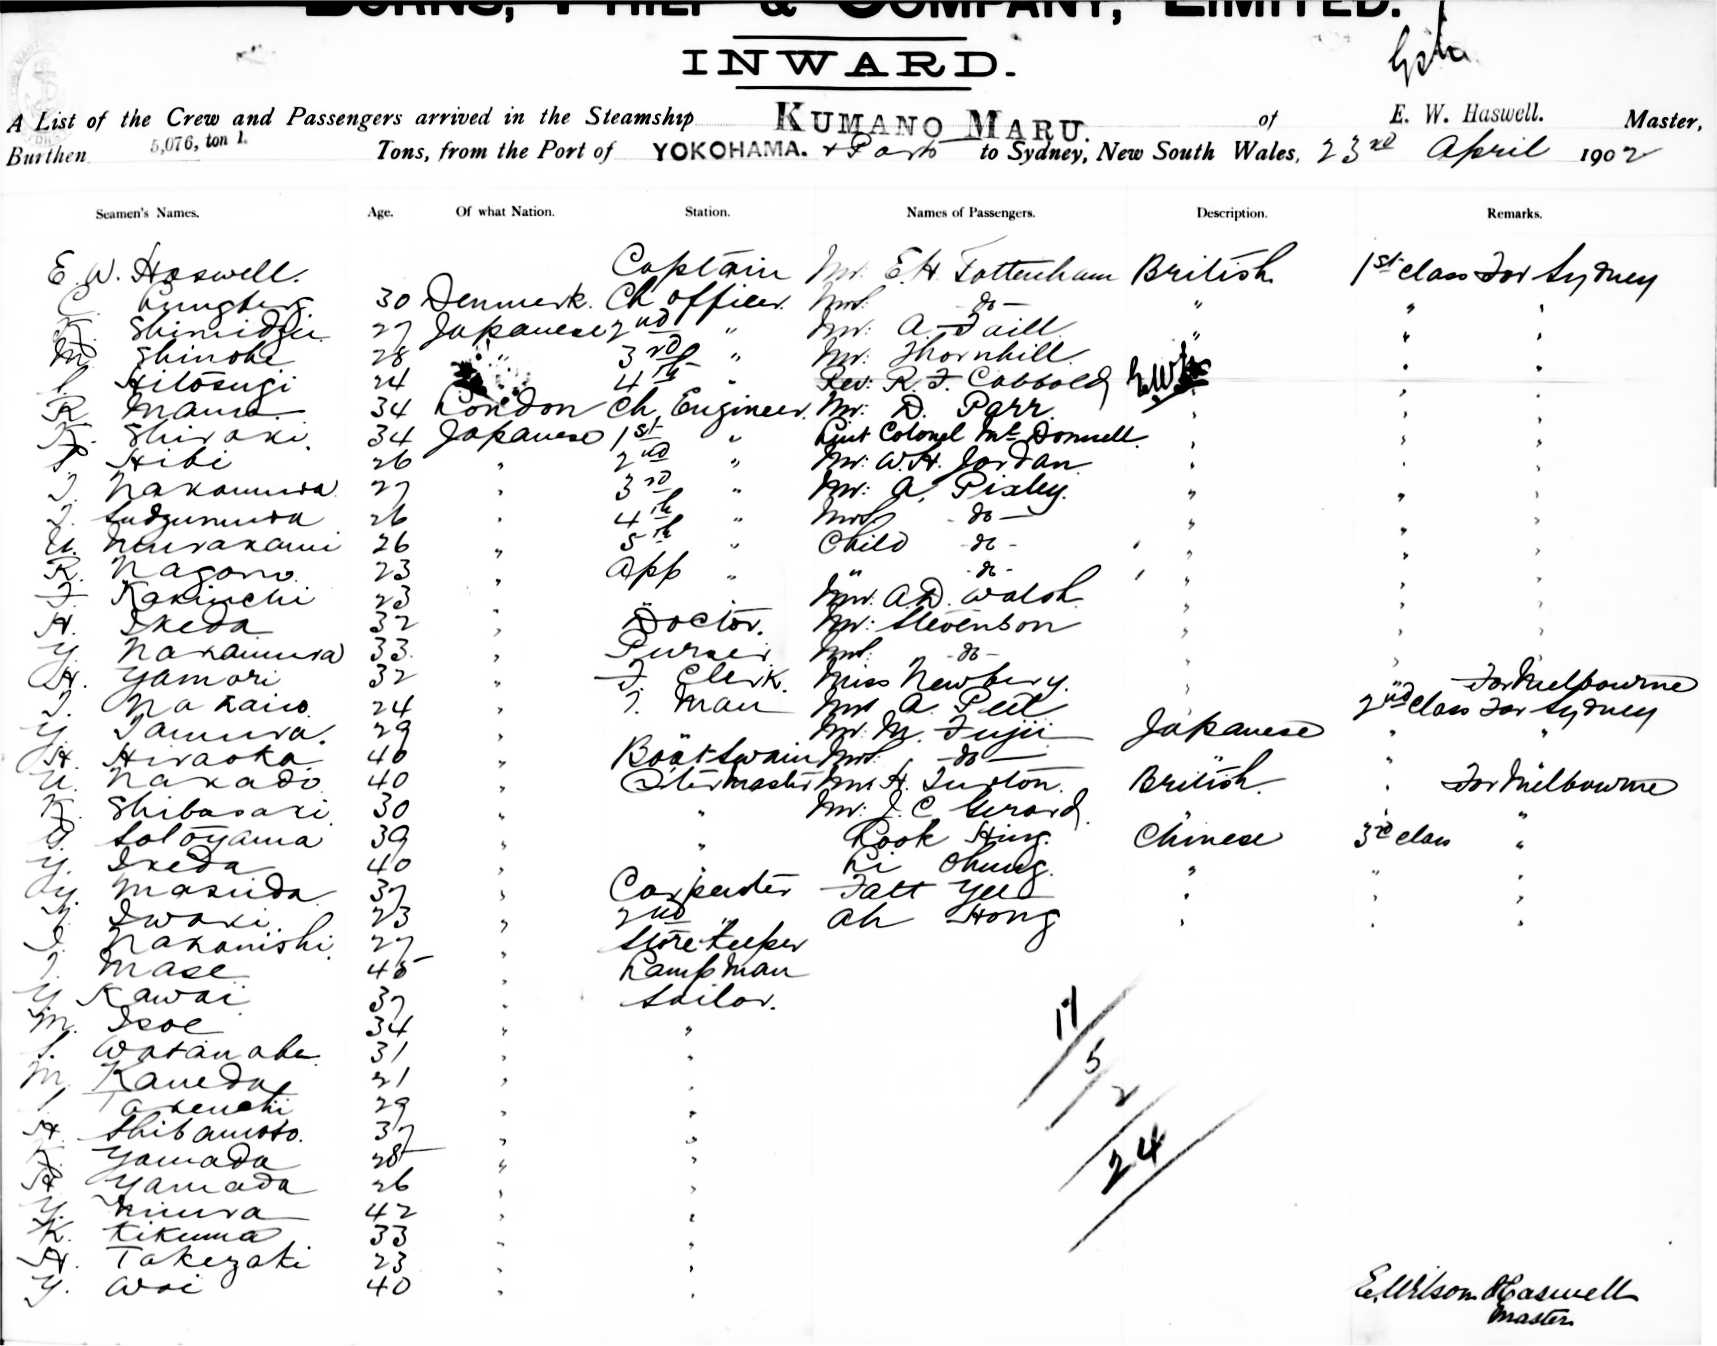 BURNS, PHILP & COMPANY, LIMITED.
INWARD.
A List of the Crew and Passengers arrived in the Steamship KUMANO MARU. of E. W. Haswell. Master,
Burthen 5,076, ton 1. Tons, from the Port of YOKOHAMA. & Ports to Sydney, New South Wales, 23rd April 1902
Seamen's Names. Age. Of what Nation. Station. Names of Passengers. Description. Remarks.
E. W. Haswell. Captain Mr. E. H. Tottenham British 1st class For Sydney
C. 30 Denmark. Ch officer. Mrs. do - " " "
K. Shimidzu 27 Japanese 2nd " Mr: A. Taill " " "
M. Shinohe 28 " 3rd " Mr: Thornhill
S. Hitosugi 24 4th " Rev: R. F. Cobbold E.W.H.
R. 34 London Ch. Engineer. Mr: D. Parr.
K. Shiraki. 34 Japanese 1st " Liut Colonel Mc Donnell.
Hibi 26 " 2nd " Mr: W. H. Jordan.
T. Nakamura 27 " 3rd " Mr: A. Pixley. " "
T. Sudzumura 26 " 4th " Mrs. - do - " "
U. Murakami 26 " 5th " Child - do - " "
R. Nagano. 23 " App " " - do - " "
T. Kakiuchi 23 " Mr. A. D. Walsh " "
H. Ikeda 32 " Doctor. Mr: Stevenson " "
Y. Nakamura 33. " Purser Mrs. - do - " "
H. Yamori 32 " F. Clerk. Miss Newbery. " For Melbourne
T. Nakano 24 " T. Man Mrs A. Peil 2nd class For Sydney
Y. Tamura. 29 " Mr. M. Fujii Japanese " "
H. Hiraoka 40 " Boatswain Mrs. - do - "
U. Nakado 40 " Qtermaster Mr H. Turton. British. " For Melbourne
K. Shibasaki 30 " " Mr: J. C. Gerard. " "
Sotoyama 39 " " Kook Hing. Chinese 3rd class "
Y. Ikeda 40 " " Li Chung. " " "
Y. Masuda 37 " Carpenter Tatt Yee " " "
Iwaki. 23 " 2nd " Ah Hong " " "
Nakanishi. 27 " Store Keeper
T. Mase 45 " Lamp Man
Y. Kawai 37 " Sailor.
M. Isoe 34 " "
S. Watanabe 31 " "
M. Kaneda 21 " "
Takeuchi 29 " "
H. Shibamoto. 37 " "
K. Yamada 28 " "
H. Yamada 26 " "
Y. Miura 42 " "
K. Kikuma 33 " "
H. Takezaki 23 " "
Y. 40 " "
11/
5/
2
24
E. Wilson Haswell
Master